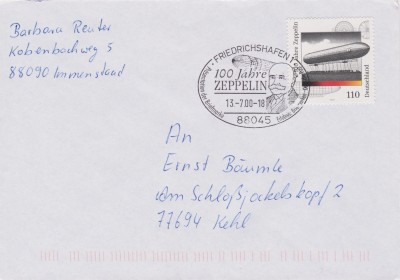 Barbara Reuter
Kobenbachweg 5
88090 Immenstaad
FRIEDRICHSHAFEN 1
100 Jahre
ZEPPELIN
13.-7.00-18
88045
100 Jahre Zeppelin
Deutschland
110
An
Ernst Bäumle
Am Schloßjockelskopf 2
77694 Kehl